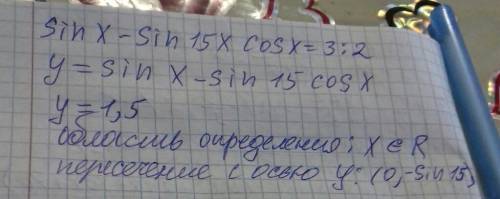 sin x - sin 15x cosx = 3:2
y = sin x - sin 15 cosx
y = 1,5
область определения: x ∈ R
пересечение с осью y: (0, -sin15)